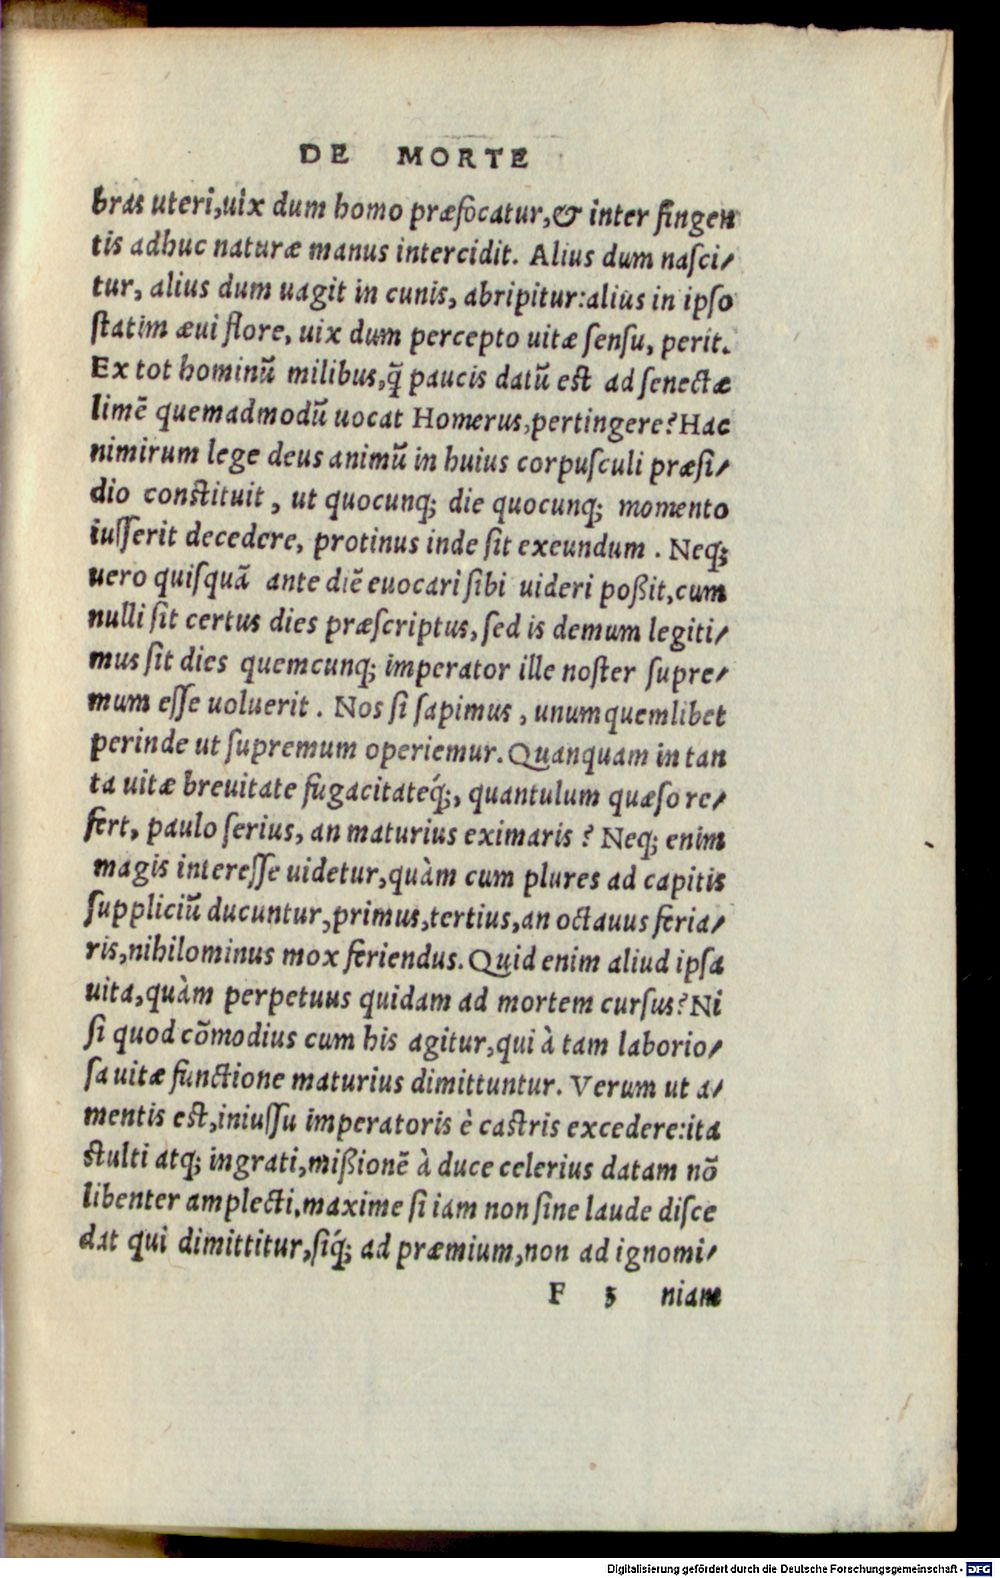 DE MORTE
bras uteri,uix dum homo præfocatur,& inter fingen
tis adhuc naturæ manus intercidit. Alius dum nasci/
tur, alius dum uagit in cunis, abripitur:alius in ipso
statim æui flore, uix dum percepto uitæ sensu, perit.
Ex tot hominũ milibus,q̃ paucis datũ est ad senectæ
limẽ quemadmodũ uocat Homerus,pertingere?Hac
nimirum lege deus animũ in huius corpusculi præsi/
dio constituit, ut quocunq; die quocunq; momento
iusserit decedere, protinus inde sit exeundum. Neq;
uero quisquã ante diẽ euocari sibi uideri poßit,cum
nulli sit certus dies præscriptus,sed is demum legiti/
mus sit dies quemcunq; imperator ille noster supre/
mum esse uoluerit. Nos si sapimus, unumquemlibet
perinde ut supremum operiemur. Quanquam in tan
ta uitæ breuitate fugacitateq́;, quantulum quæso re/
fert, paulo serius, an maturius eximaris? Neq; enim
magis interesse uidetur,quàm cum plures ad capitis
suppliciũ ducuntur,primus,tertius,an octauus feria/
ris,nihilominus mox feriendus. Quid enim aliud ipsa
uita,quàm perpetuus quidam ad mortem cursus?Ni
si quod cõmodius cum his agitur,qui à tam laborio/
sa uitæ functione maturius dimittuntur. Verum ut a/
mentis est,iniussu imperatoris è castris excedere:ita
stulti atq; ingrati,mißionẽ à duce celerius datam nõ
libenter amplecti,maxime si iam non sine laude disce
dat qui dimittitur,siq́; ad præmium,non ad ignomi/
F 3 niam
Digitalisierung gefördert durch die Deutsche Forschungsgemeinschaft - DFG